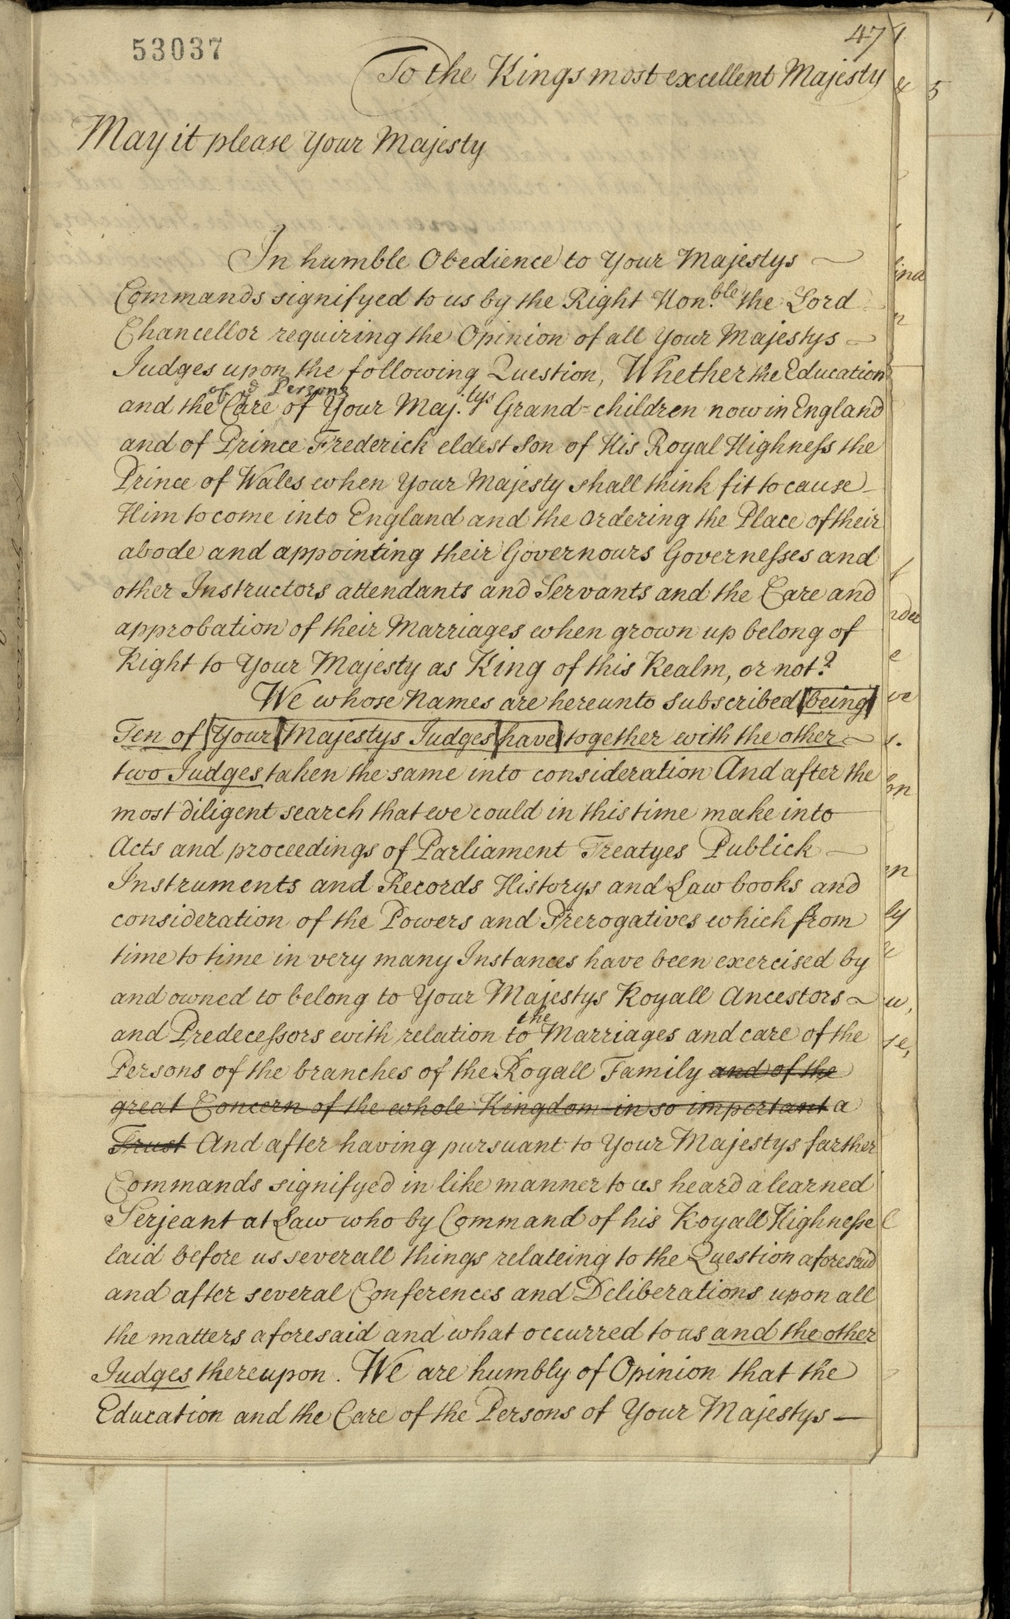 53037
47
To the Kings most excellent Majesty
May it please Your Majesty
In humble Obedience to Your Majestys
Commands signifyed to us by the Right Hon.ble the Lord
Chancellor requiring the Opinion of all Your Majestys
Judges upon the following Question, Whether the Education
of ye Persons
and the Care of Your Maj:tys Grand=children now in England
and of Prince Frederick eldest Son of His Royal Highness the
Prince of Wales when Your Majesty shall think fit to cause
Him to come into England and the Ordering the Place of their
abode and appointing their Governours Governesses and
other Instructors attendants and Servants and the Care and
approbation of their Marriages when grown up belong of
Right to Your Majesty as King of this Realm, or not?
We whose Names are hereunto Subscribed being
Ten of Your Majestys Judges have together with the other
two Judges taken the same into consideration And after the
most diligent search that we could in this time make into
Acts and proceedings of Parliament Treatyes Publick
Instruments and Records Historys and Law books and
consideration of the Powers and Prerogatives which from
time to time in very many Instances have been exercised by
and owned to belong to Your Majestys Royall Ancestors
the
and Predecessors with relation to Marriages and care of the
Persons of the branches of the Royall Family and of the
great Concern of the whole Kingdom in so important a
Trust And after having pursuant to Your Majestys farther
Commands signifyed in like manner to us heard a learned
Serjeant at Law who by Command of his Royall Highnesse
laid before us severall things relateing to the Question aforesaid
and after several Conferences and Deliberations upon all
the matters aforesaid and what occurred to us and the other
Judges thereupon. We are humbly of Opinion that the
Education and the Care of the Persons of Your Majestys